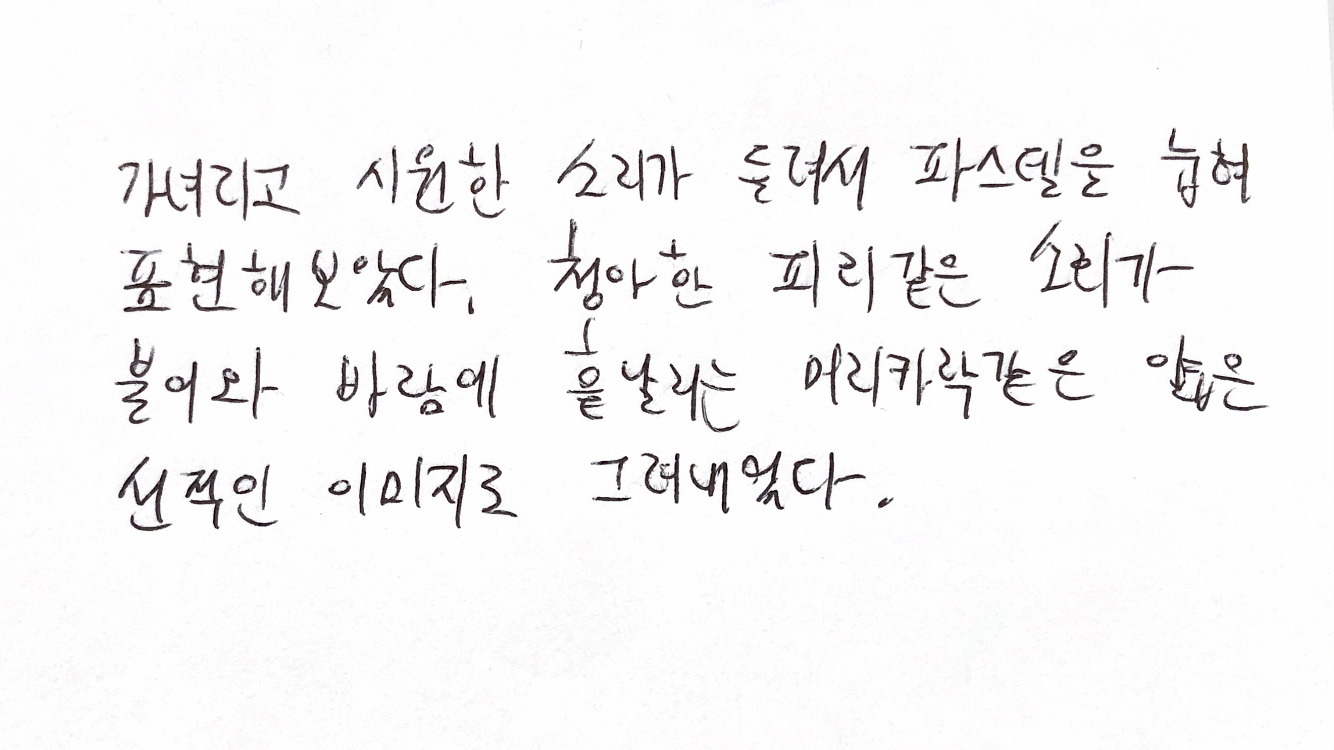 가녀리고 시원한 소리가 들려서 파스텔을 눕혀
표현해보았다. 청아한 피리같은 소리가
불어와 바람에 흩날리는 머리카락같은 얇은
선적인 이미지로 그려내었다.